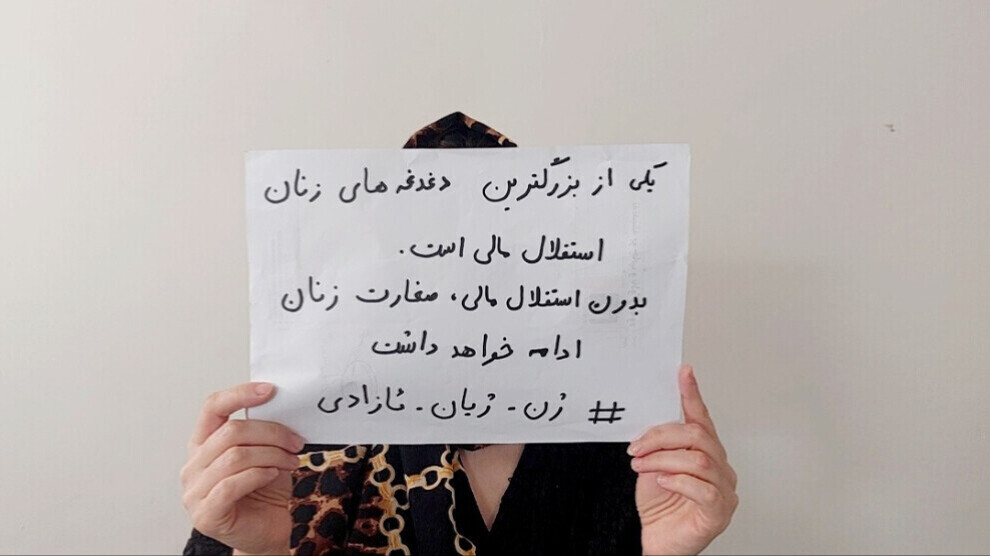 یکی از بزرگترین دغدغه های زنان
استقلال مالی است.
بدون استقلال مالی، صغارت زنان
ادامه خواهد داشت
# ژن - ژیان - ئازادی